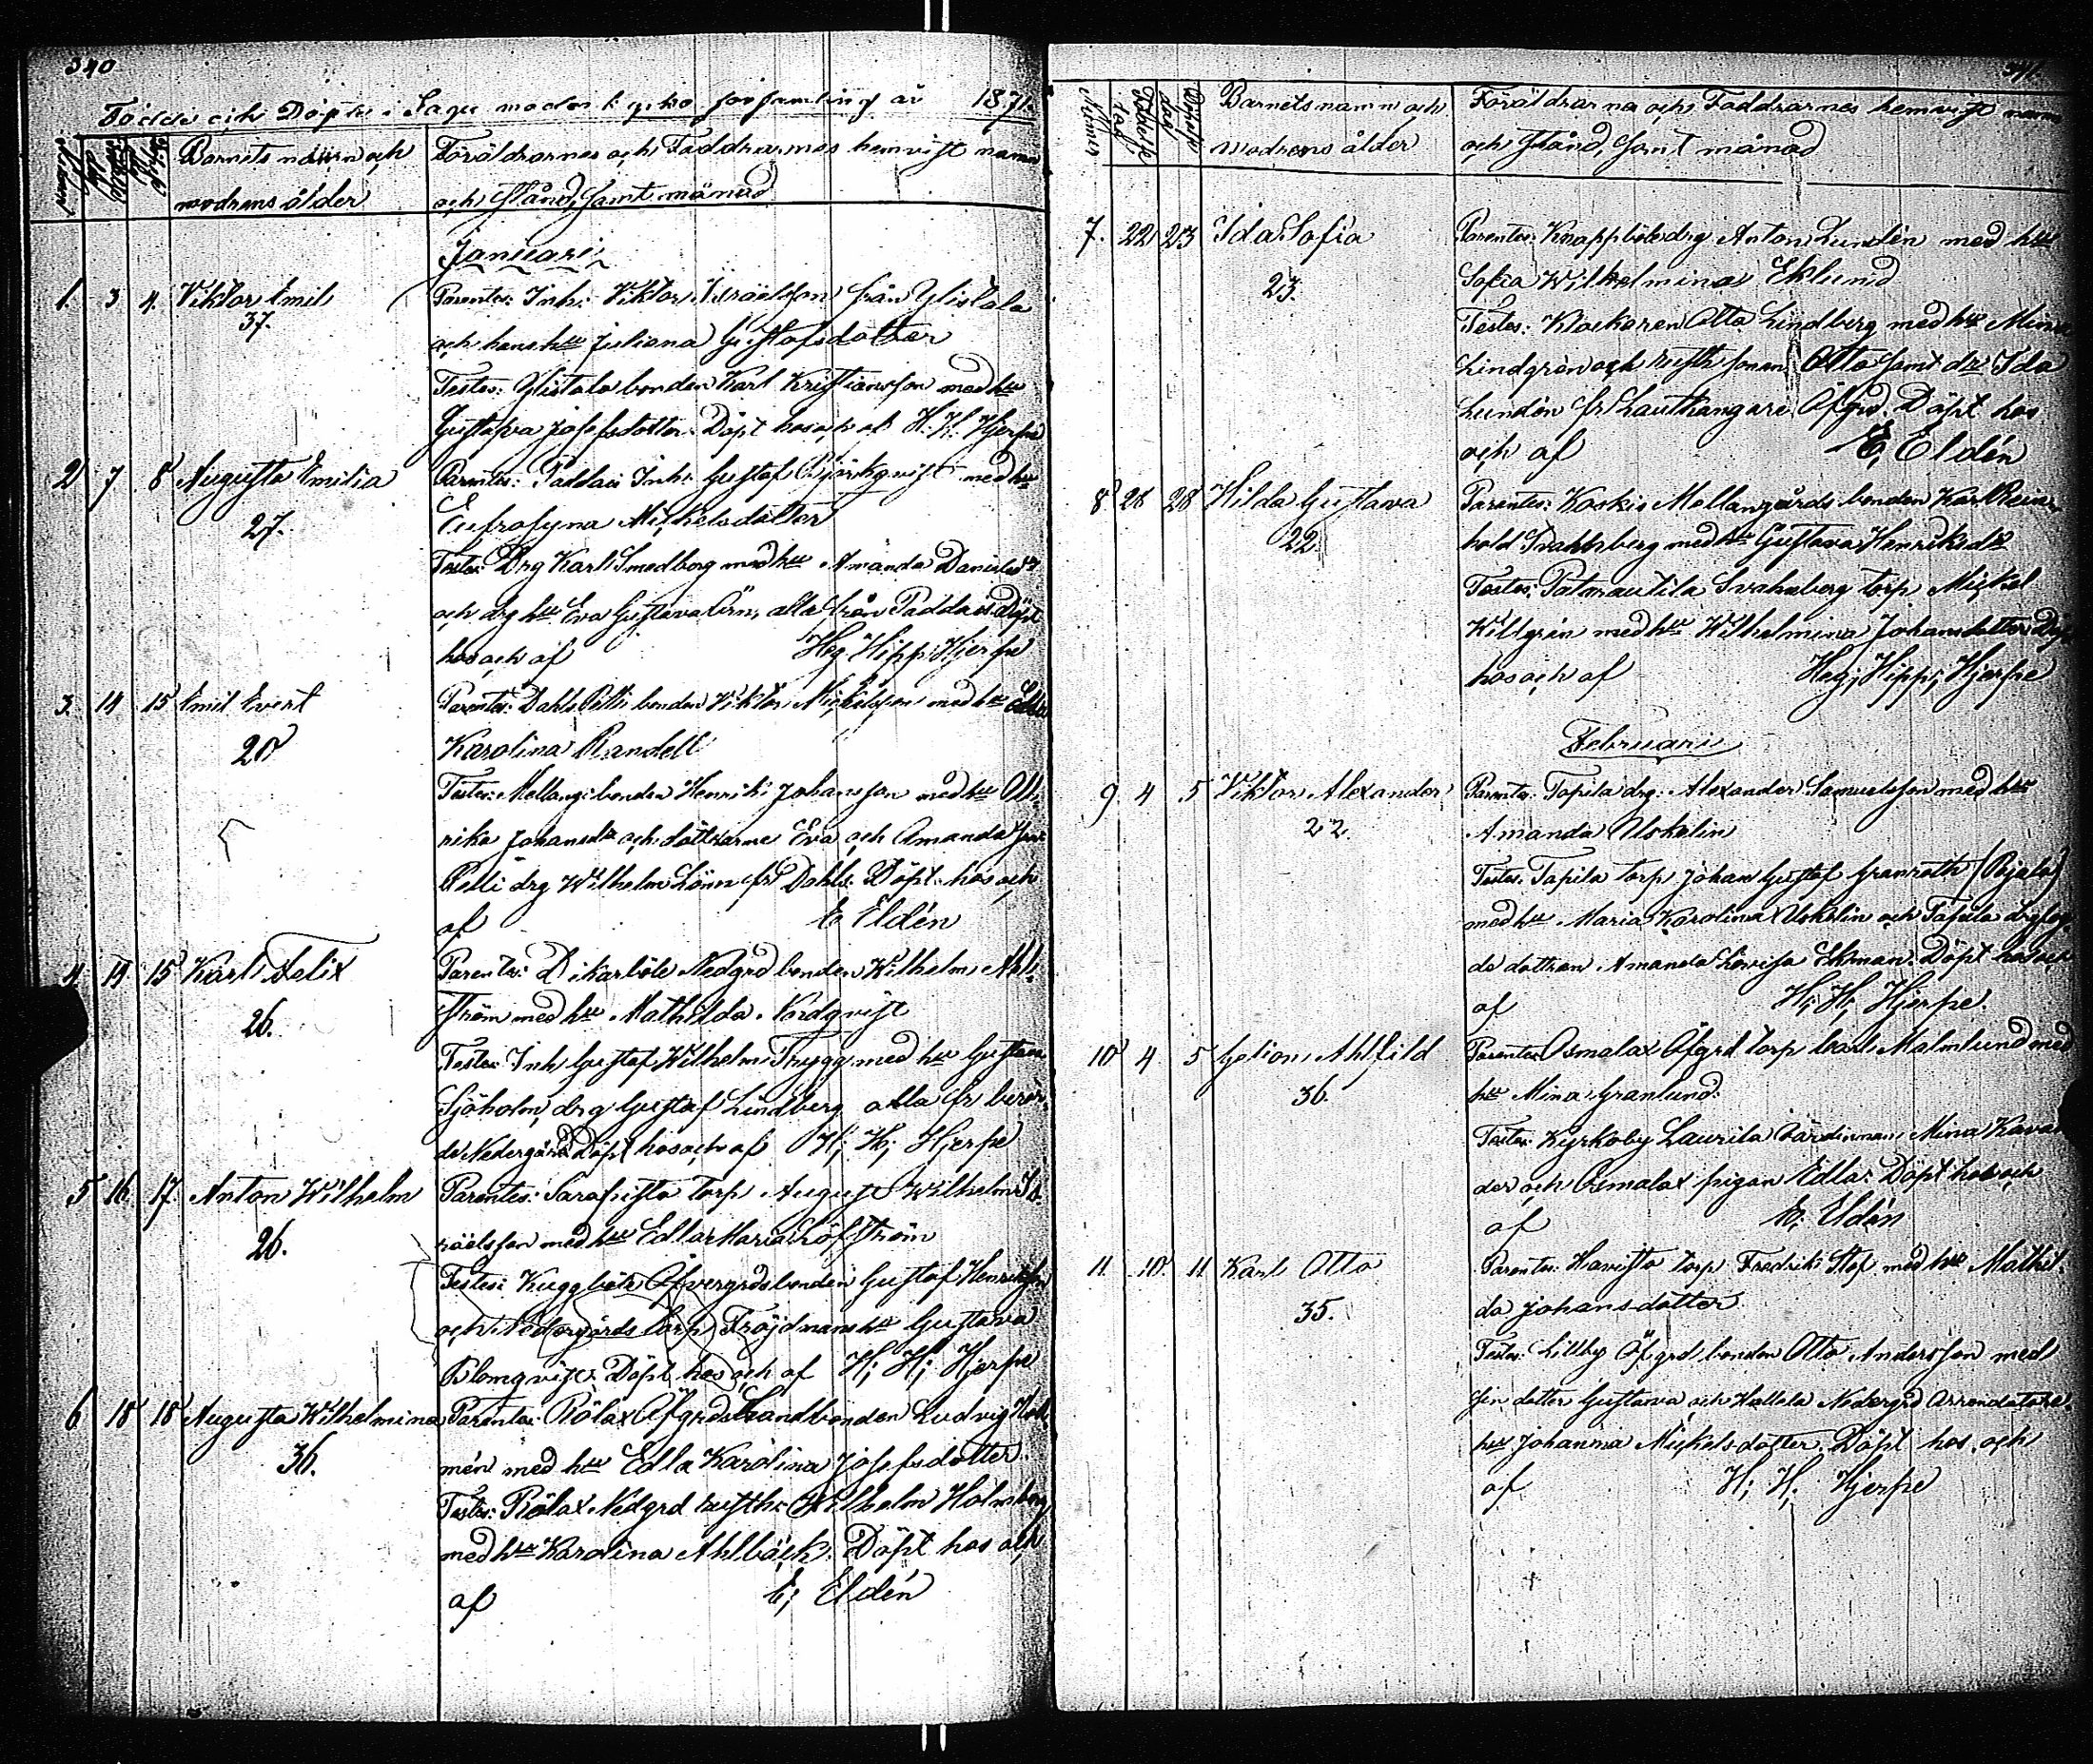 340
Födde och Döpte i Sagu moder kyrko församling år 1871
Barnets namn och
modrens ålder
Föräldrarnes och Faddrarnes hemvist namn
och stånd, samt månad
Januari
1. 3 4. Viktor Emil
37.
Parentes: Inh: Viktor Israelsson från Ylistalo
och hans hu Juliana Gustafsdotter
Testes: Ylistalo bonden Karl Kristiansson med hu
Gustafva Josefsdotter. Döpt hos och af H. H. Hjerpe
2 7 8 Augusta Emilia
27.
Parentes: Paddais Inh: Gustaf Björkqvist med hu
Eufrosyna Mickelsdotter
Testes: Drg Karl Smedberg med hu Amanda Danielsdr
och drg hu Eva Gustava Örn, alla från Paddais Döpt
hos och af Heg Hipp: Hjerpe
3. 14 15 Emil Evert
20
Parentes: Dahls Pelli bonden Viktor Mickelsson med hu Edla
Karolina Randell
Testes: Mellang: bonden Henrik Johansson med hu Ull-
rika Johansdr och döttrarne Eva och Amanda samt
Pelli drg Wilhelm Lönn fr Dahls. Döpt hos och
af E Eldén
4 14 15 Karl Felix
26.
Parentes: Dikarböle Nedgrd bonden Wilhelm Ahl-
ström med hu Mathilda Nordqvist
Testes: Inh Gustaf Wilhelm Trygg med hu Gustava
Sjöholm, drg Gustaf Lindberg alla fr berör-
de Nedergård Döpt hos och af H; H; Hjerpe
5 16. 17. Anton Wilhelm
26.
Parentes: Sarapisto torp August Wilhelm Is-
raelsson med hu Edla Maria Löfström
Testes: Kuggböle Öfvergrds bonden Gustaf Henriksson
och Nedergårds torp Fröjdmans hu Gustava
Blomqvist. Döpt hos och af H; H; Hjerpe
6 18 18 Augusta Wilhelmina
36.
Parentes: Rölax Öfgrds Landbonden Ludvig
mén med hu Edla Karolina Josefsdotter
Testes: Rölax Nedgrd Wilhelm Holmberg
med hu Karolina Ahlbäck. Döpt hos och
af E; Eldén
341.
Barnets namn och
modrens ålder
Föräldrarna och Faddrarnes hemvist namn
och stånd, samt månad
7. 22 23 Ida Sofia
23.
Parentes: Knappböle drg Anton Lundén med hu
Sofia Wilhelmina Eklund
Testes: Klockaren Otto Lindberg med hu Mina
Lindgrén och sonen Otto samt dr Ida
Lundén fr Lauthangare Öfgrd. Döpt hos
och af E, Eldén
8 26 28 Hilda Gustava
22.
Parentes: Koskis Mellangårds bonden Karl Rein-
hold Svahnberg med hu Gustava Henriksdr
Testes: Patmautila Svahnberg torp Mickel
Killgrén med hu Wilhelmina Johansdotter Döpt
hos och af Heg; Hipp; Hjerpe
Februari
9 4 5 Viktor Alexander
22.
Parentes: Tapila drg: Alexander Samuelsson med hu
Amanda Uskelin
Testes: Tapila torp Johan Gustaf Granroth (Pojalo)
med hu Maria Karolina Uskelin och Tapila
do dottren Amanda Lovisa Ekman. Döpt hos och
af H; H; Hjerpe.
10 4 5 Gotion Ahlfild
36.
Parentes: Osmalax Öfgrd torp Karl Malmlund med
hu Mina Granlund.
Testes: Kyrkoby Laurila värdinnan Mina Kavan-
der och Osmalax pigan Edla. Döpt hos och
af E. Eldén
11. 10. 11 Karl Otto
35.
Parentes: Havisto torp Fredrik Stef. med hu Mathil-
da Johansdotter
Testes: Lillby Öfgrd bonden Otto Andersson med
sin dotter Gustava och Hallela Nedergrd Arrendators
hu Johanna Mickelsdotter. Döpt hos och
af H; H; Hjerpe